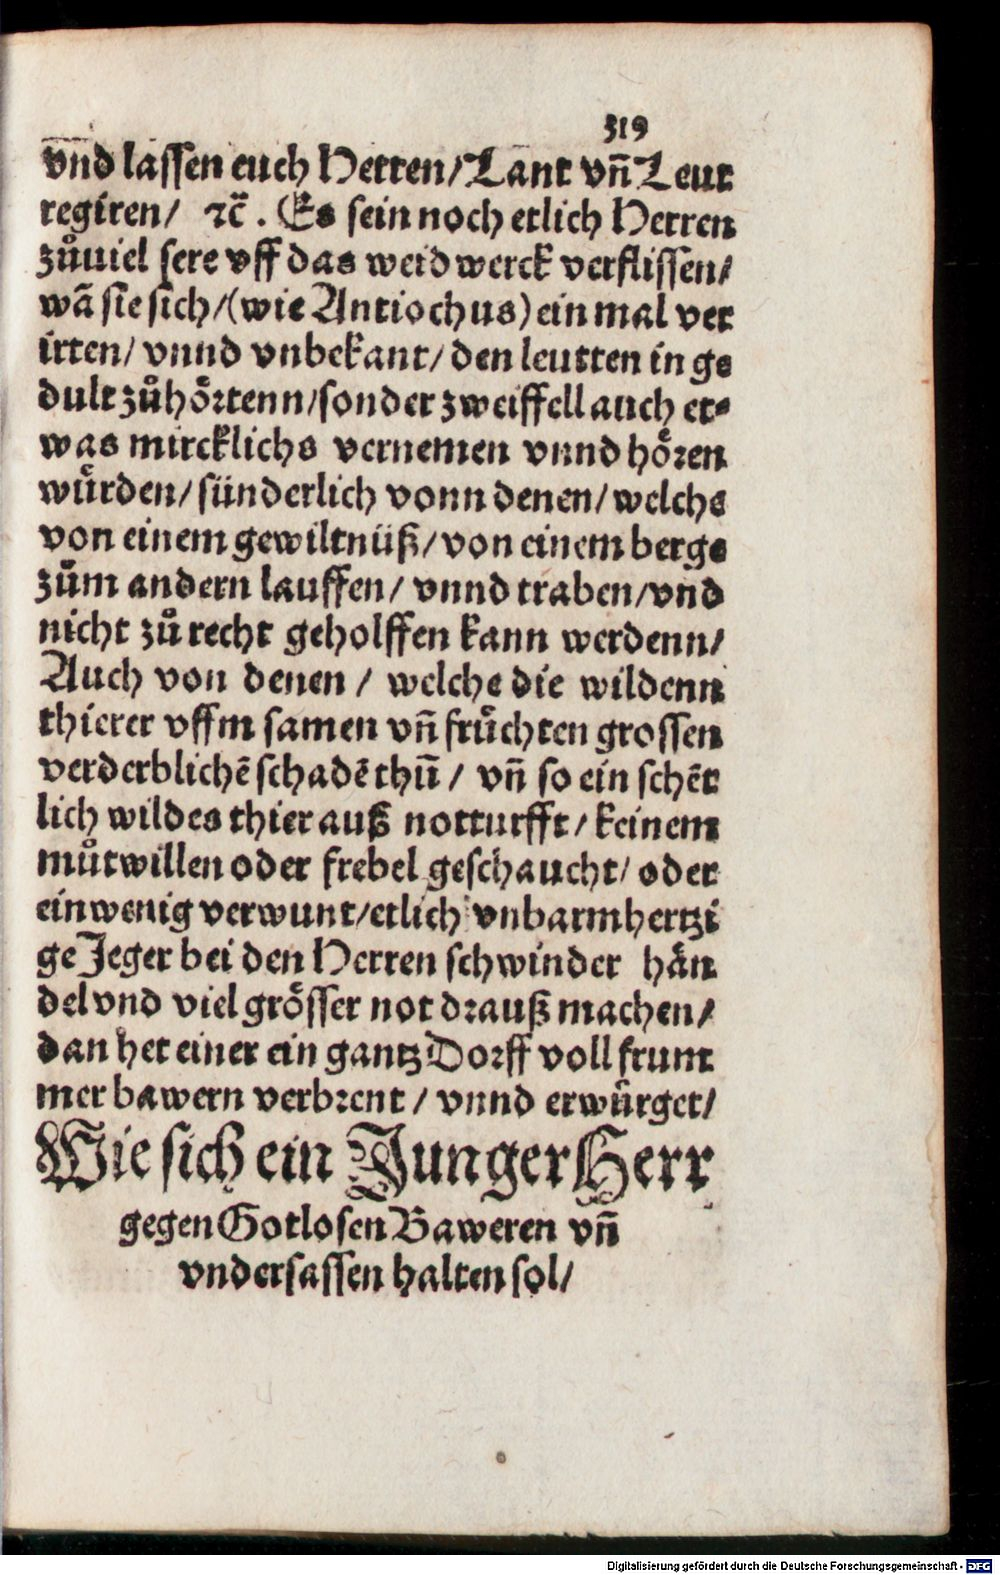 319
vnd lassen euch Herren/ Lant vn̄ Leut
regiren/ ⁊c̄. Es sein noch etlich Herren
zůuiel sere vff das weidwerck verflissen/
wā sie sich/ (wie Antiochus) ein mal ver
irten/ vnnd vnbekant/ den leutten in ge
dult zůhoͤrtenn/ sonder zweiffell auch et⸗
was mircklichs vernemen vnnd hoͤren
wuͤrden/ sünderlich vonn denen/ welchs
von einem gewiltnüß/ von einem berge
zům andern lauffen/ vnnd traben/ vnd
nicht zů recht geholffen kann werdenn/
Auch von denen / welche die wildenn
thierer vffm samen vn̄ fruͤchten grossen
verderblichē schadē thū / vn̄ so ein schēt
lich wildes thier auß notturfft/ keinem
můtwillen oder frebel geschaucht/ oder
ein wenig verwunt/ etlich vnbarmhertzi
ge Jeger bei den Herren schwinder haͤn
del vnd viel groͤsser not drauß machen/
dan het einer ein gantz Dorff voll frum
mer bawern verbrent / vnnd erwuͤrget/
Wie sich ein Junger Herr
gegen Gotlosen Baweren vn̄
vndersassen halten sol/
Digitalisierung gefördert durch die Deutsche Forschungsgemeinschaft - DFG